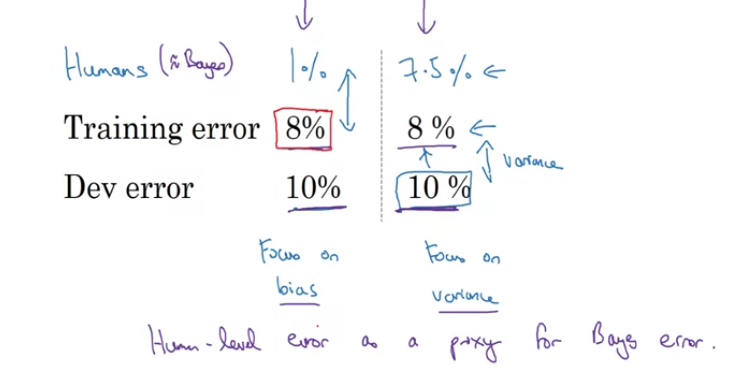 Humans (≈ Bayes) 1% 7.5%
Training error 8% 8 %
variance
Dev error 10% 10 %
Focus on bias
Focus on variance
Human-level error as a proxy for Bayes error.